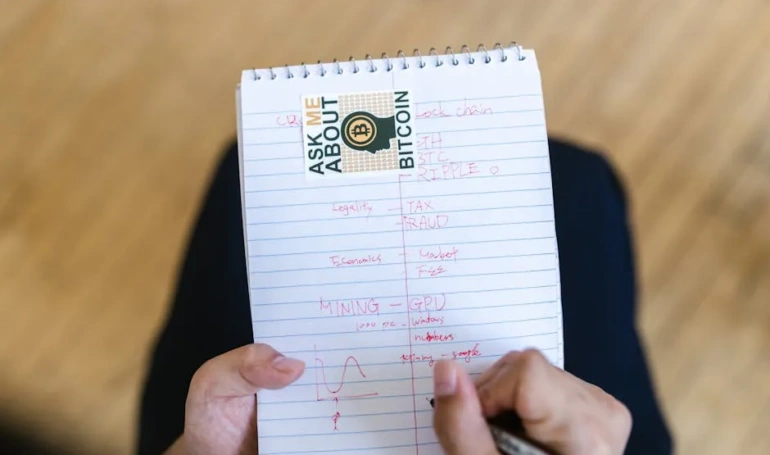 ASK ME
ABOUT
BITCOIN
lock chain
TH
BTC
RIPPLE
Legality — TAX
FRAUD
Economics - Market
FEE
MINING — GPU
windows
numbers
- single